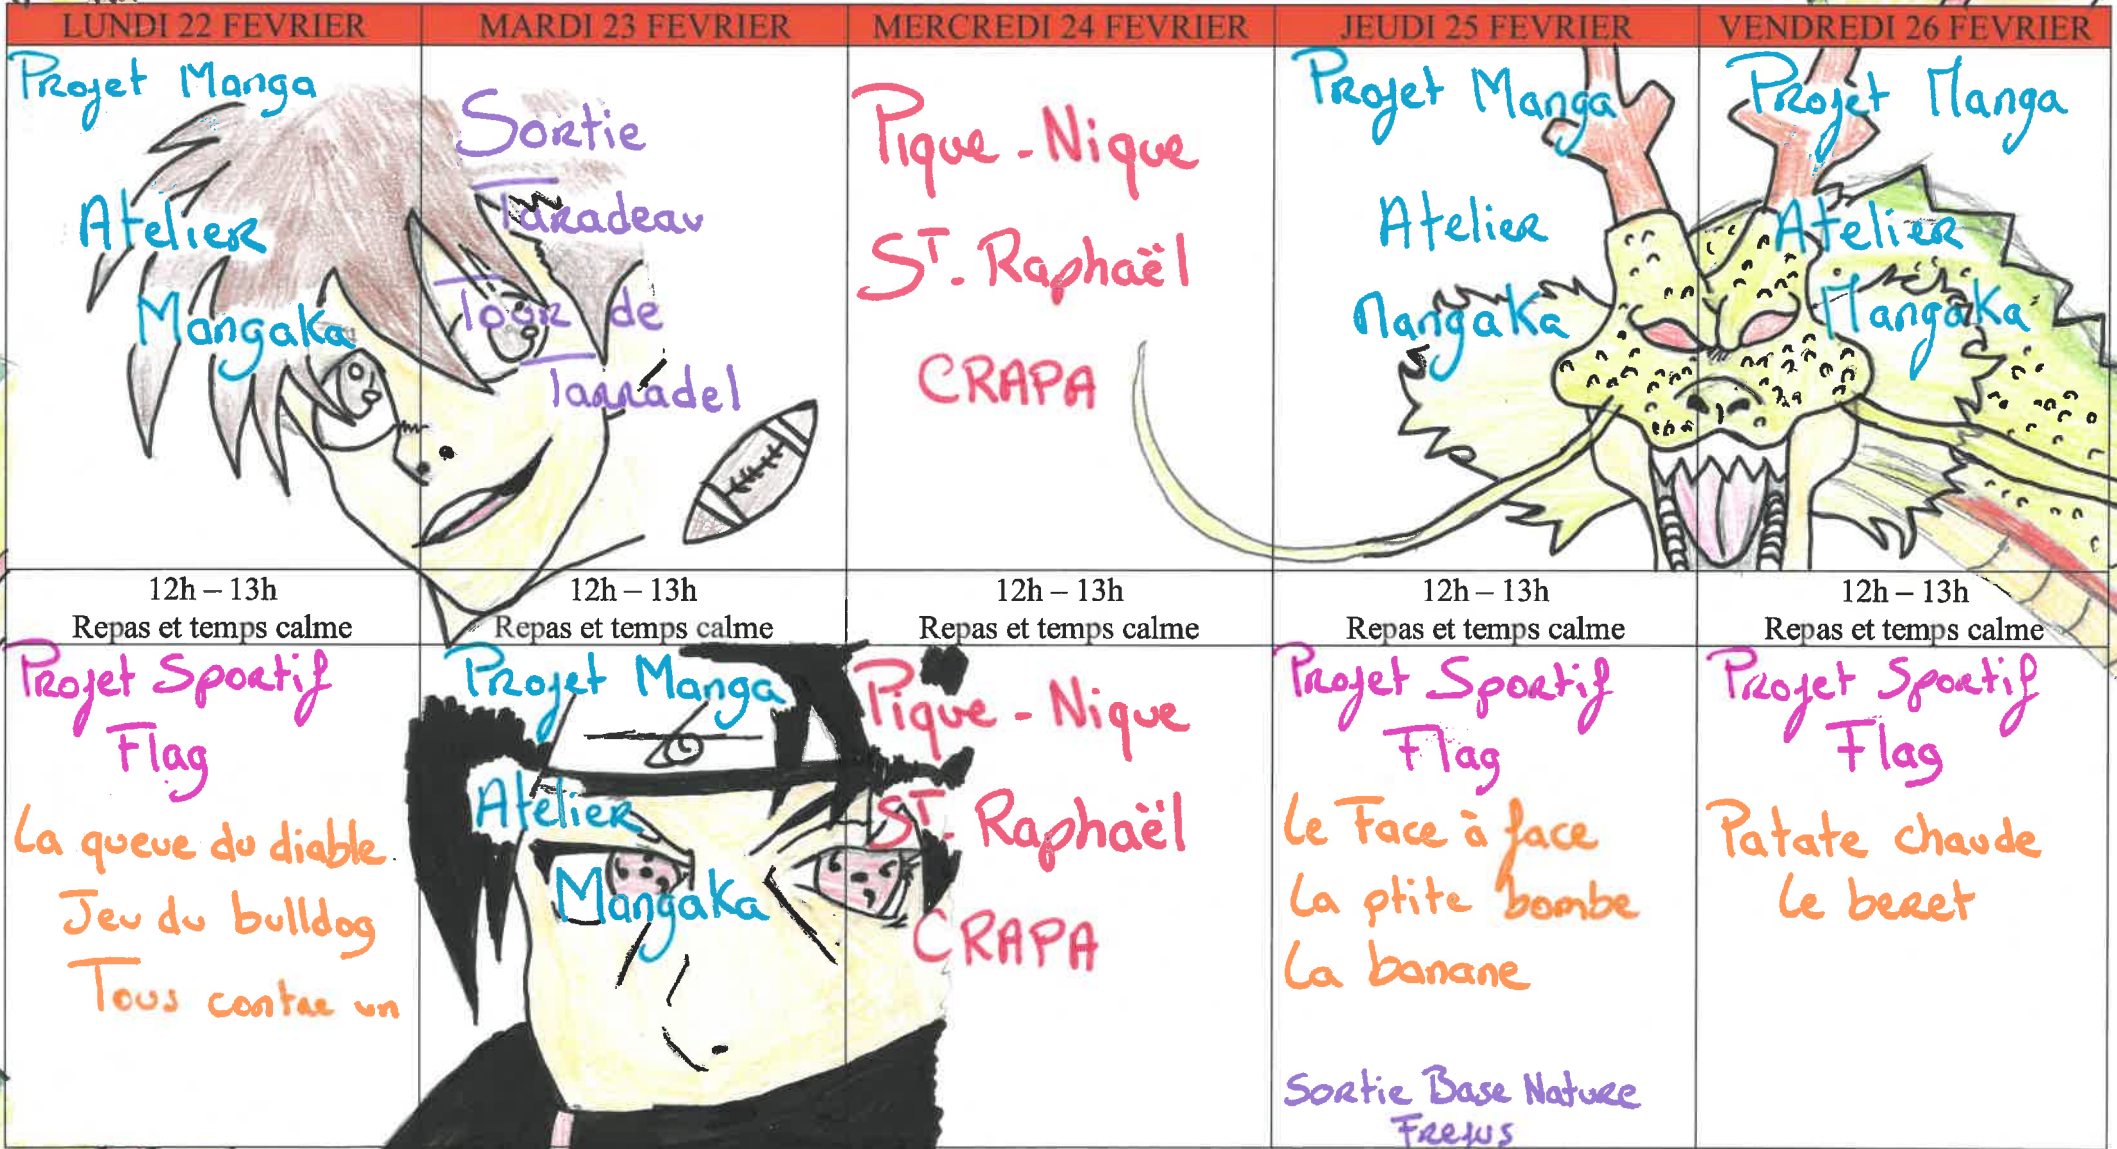 LUNDI 22 FEVRIER
MARDI 23 FEVRIER
MERCREDI 24 FEVRIER
JEUDI 25 FEVRIER
VENDREDI 26 FEVRIER
Projet Manga
Atelier
Mangaka
Sortie
Taradeau
Tour de
Tarradel
Pique-Nique
ST. Raphaël
CRAPA
Projet Manga
Atelier
Mangaka
Projet Manga
Atelier
Mangaka
12h – 13h
Repas et temps calme
12h – 13h
Repas et temps calme
12h – 13h
Repas et temps calme
12h – 13h
Repas et temps calme
12h – 13h
Repas et temps calme
Projet Sportif
Flag
La queue du diable.
Jeu du bulldog
Tous contre un
Projet Manga
Atelier
Mangaka
Pique-Nique
ST. Raphaël
CRAPA
Projet Sportif
Flag
Le Face à face
La ptite bombe
La banane
Sortie Base Nature
Frejus
Projet Sportif
Flag
Patate chaude
Le beret